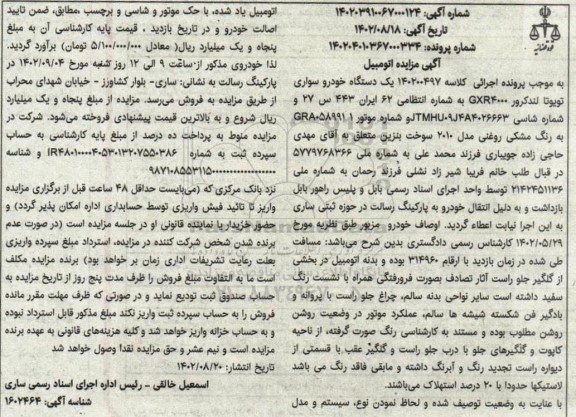 شماره آگهی: ۱۴۰۲۰۳۹۱۰۰۶۷۰۰۰۱۲۴
تاریخ آگهی: ۱۴۰۲/۰۸/۱۸
شماره پرونده: ۱۴۰۲۰۴۰۱۰۳۶۷۰۰۰۳۳۴
آگهی مزایده اتومبیل
به موجب پرونده اجرائی کلاسه ۱۴۰۲۰۰۴۹۷ یک دستگاه خودرو سواری
تویوتا لندکرور GXR۴۰۰۰ به شماره انتظامی ۶۲ ایران ۴۴۳ س ۲۷ و
شماره شاسی JTMHU۰۹J۴A۴۰۲۶۶۶۳و شماره موتور ۱GRA۰۵۸۹۹۱
به رنگ مشکی روغنی مدل ۲۰۱۰ سوخت بنزین متعلق به آقای مهدی
حاجی زاده جویباری فرزند محمد علی به شماره ملی ۵۷۷۹۷۶۸۳۶۶
در قبال طلب خانم فریبا شیر زاد نشلی فرزند رحمان به شماره ملی
۲۱۴۲۴۵۱۱۳۶ توسط واحد اجرای اسناد رسمی بابل و پلیس راهور بابل
بازداشت و به دلیل انتقال خودرو به پارکینگ رسالت در حوزه ثبتی ساری
به این اجرا نیابت اعطاء گردید. اوصاف خودرو مزبور طبق نظریه مورخ
۱۴۰۲/۰۵/۲۹ کارشناس رسمی دادگستری بدین شرح می‌باشد: مسافت
طی شده در زمان بازدید با ارقام ۳۱۴۹۶۰ بوده و بدنه اتومبیل در بخشی
از گلگیر جلو راست آثار تصادف بصورت فرورفتگی همراه با نشست رنگ
سفید داشته است سایر نواحی بدنه سالم، چراغ جلو راست با پروانه و
بادگیر فن شکسته شیشه ها سالم، عملکرد موتور در وضعیت روشن
روشن مطلوب بوده و مستند به کارشناسی رنگ صورت گرفته، از ناحیه
کاپوت و گلگیرهای جلو با درب جلو راست و گلگیر عقب با قسمتی از
دیواره راست تجدید رنگ و آبرنگ داشته و مابقی فاقد رنگ می باشد
لاستیکها حدودا با ۲۰ درصد استهلاک می‌باشند.
با عنایت به وضعیت توصیف شده و لحاظ نمودن نوع، سیستم و مدل
اتومبیل یاد شده، با حک موتور و شاسی و برچسب ،مطابق، ضمن تایید
اصالت خودرو و در تاریخ بازدید ، قیمت پایه کارشناسی آن به مبلغ
پنجاه و یک میلیارد ریال( معادل ۵/۱۰۰/۰۰۰/۰۰۰ تومان) برآورد گردید.
لذا خودروی مذکور از ساعت ۹ الی ۱۲ روز شنبه مورخ ۱۴۰۲/۰۹/۰۴ در
پارکینگ رسالت به نشانی: ساری- بلوار کشاورز - خیابان شهدای محراب
از طریق مزایده به فروش می‌رسد. مزایده از مبلغ پنجاه و یک میلیارد
ریال شروع و به بالاترین قیمت پیشنهادی فروخته می‌شود. شرکت در
مزایده منوط به پرداخت ده درصد از مبلغ پایه کارشناسی به حساب
سپرده ثبت به شماره و شناسه
نزد بانک مرکزی که (می‌بایست حداقل ۴۸ ساعت قبل از برگزاری مزایده
واریز تا تائید فیش واریزی توسط حسابداری اداره امکان پذیر گردد) و
حضور خریدار یا نماینده قانونی او در جلسه مزایده است (در صورت عدم
برنده شدن شخص شرکت کننده در مزایده، استرداد مبلغ سپرده واریزی
بعلت رعایت تشریفات اداری زمان بر خواهد بود) برنده مزایده مکلف
است ما به التفاوت مبلغ فروش را ظرف مدت پنج روز از تاریخ مزایده به
حساب صندوق ثبت تودیع نماید و در صورتی که ظرف مهلت مقرر مانده
فروش را به حساب سپرده ثبت واریز نکند مبلغ مذکور قابل استرداد نبوده
و به حساب خزانه واریز خواهد شد و کلیه هزینه‌های قانونی به عهده برنده
مزایده است و نیم عشر و حق مزایده نقدا وصول خواهد شد
تاریخ انتشار: ۱۴۰۲/۰۸/۲۰
اسمعیل خالقی - رئیس اداره اجرای اسناد رسمی ساری
شناسه آگهی: ۱۶۰۲۴۶۴